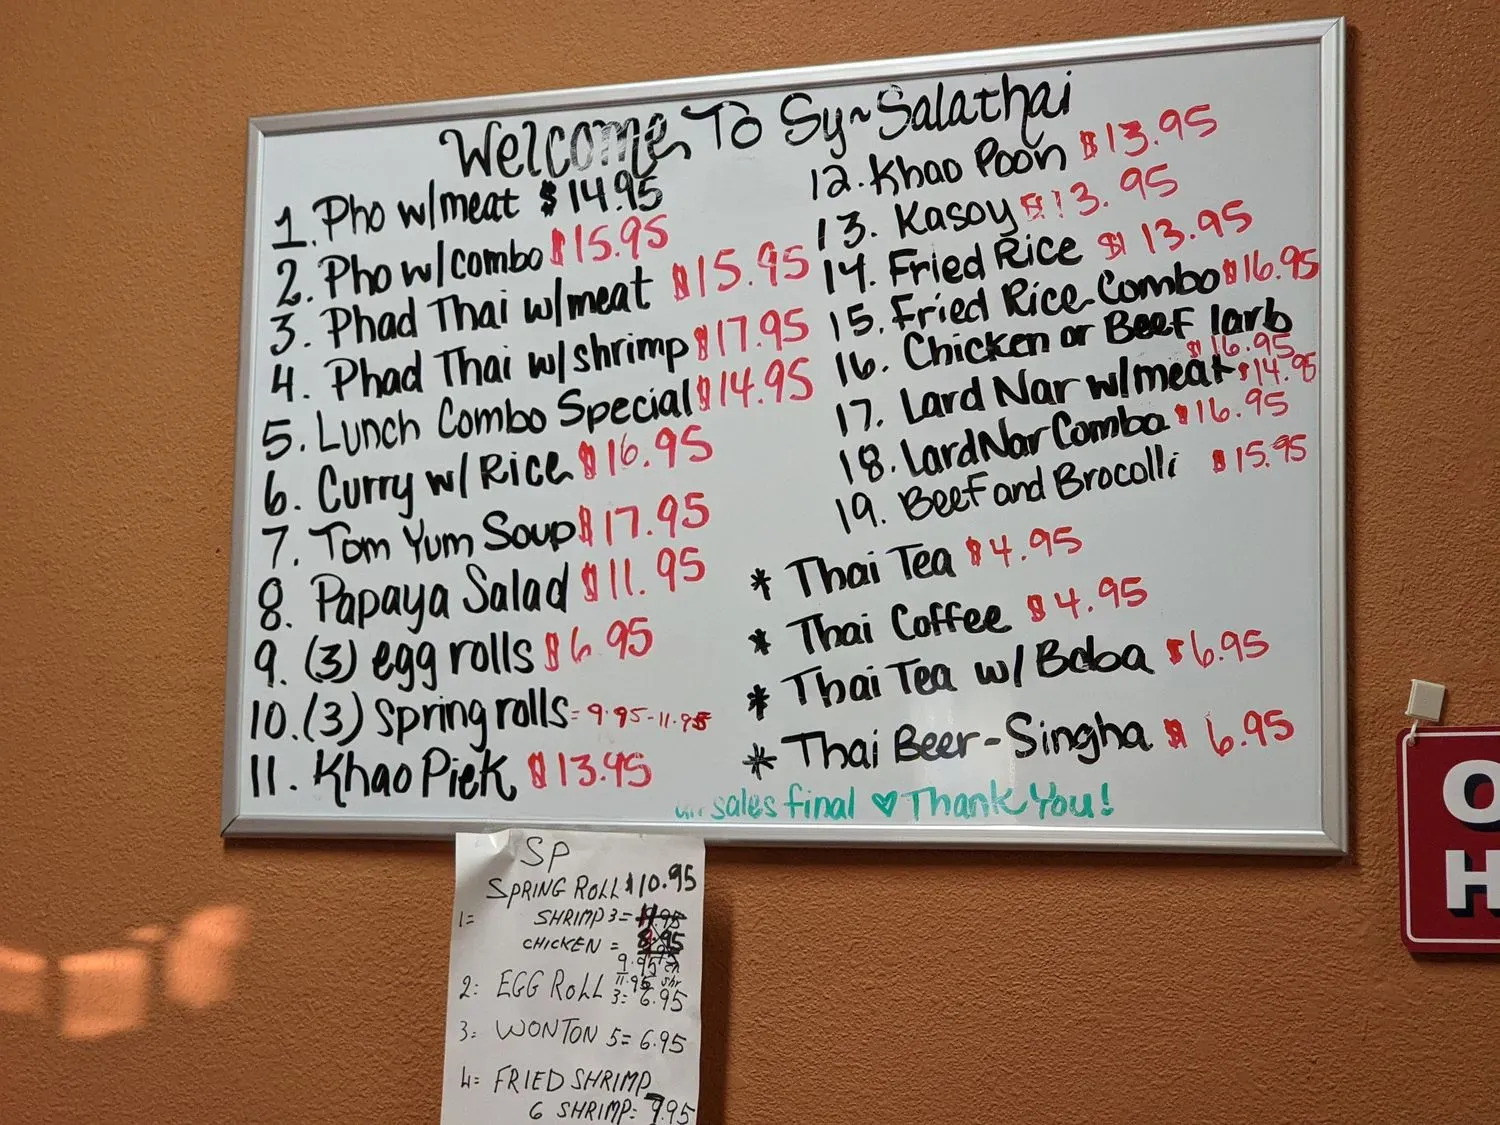 Welcome To Sy~Salathai
1. Pho w/meat $14.95
2. Pho w/combo $15.95
3. Phad Thai w/meat $15.95
4. Phad Thai w/shrimp $17.95
5. Lunch Combo Special $14.95
6. Curry w/ Rice $16.95
7. Tom Yum Soup $17.95
8. Papaya Salad $11.95
9. (3) egg rolls $6.95
10. (3) spring rolls = 9.95-11.95
11. Khao Piek $13.95
12. Khao Poon $13.95
13. Kasoy $13.95
14. Fried Rice $13.95
15. Fried Rice Combo $16.95
16. Chicken or Beef larb
$16.95
17. Lard Nar w/meat $14.95
18. Lard Nar Combo $16.95
19. Beef and Brocolli $15.95
* Thai Tea $4.95
* Thai Coffee $4.95
* Thai Tea w/ Boba $6.95
* Thai Beer-Singha $6.95
sales final ♥ Thank You!
SP
SPRING ROLL $10.95
1= SHRIMP 3= 11.95
CHICKEN = 8.95
9.95 ch
11.95 shr
2: EGG ROLL 3= 6.95
3: WONTON 5= 6.95
4= FRIED SHRIMP
6 SHRIMP= 7.95
O
H